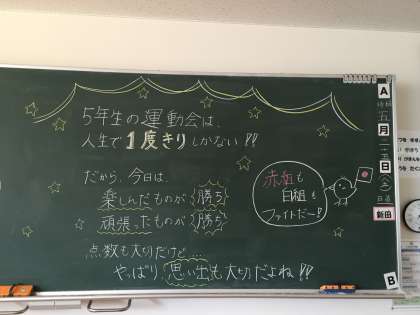 5年生の運動会は、
人生で1度きりしかない!!
だから、今日は、
楽しんだものが勝ち
頑張ったものが勝ち
点数も大切だけど…
やっぱり思い出も大切だよね!!
赤組も
白組も
ファイトだー!!
A
五月二十五日(土)
日直
新田
B